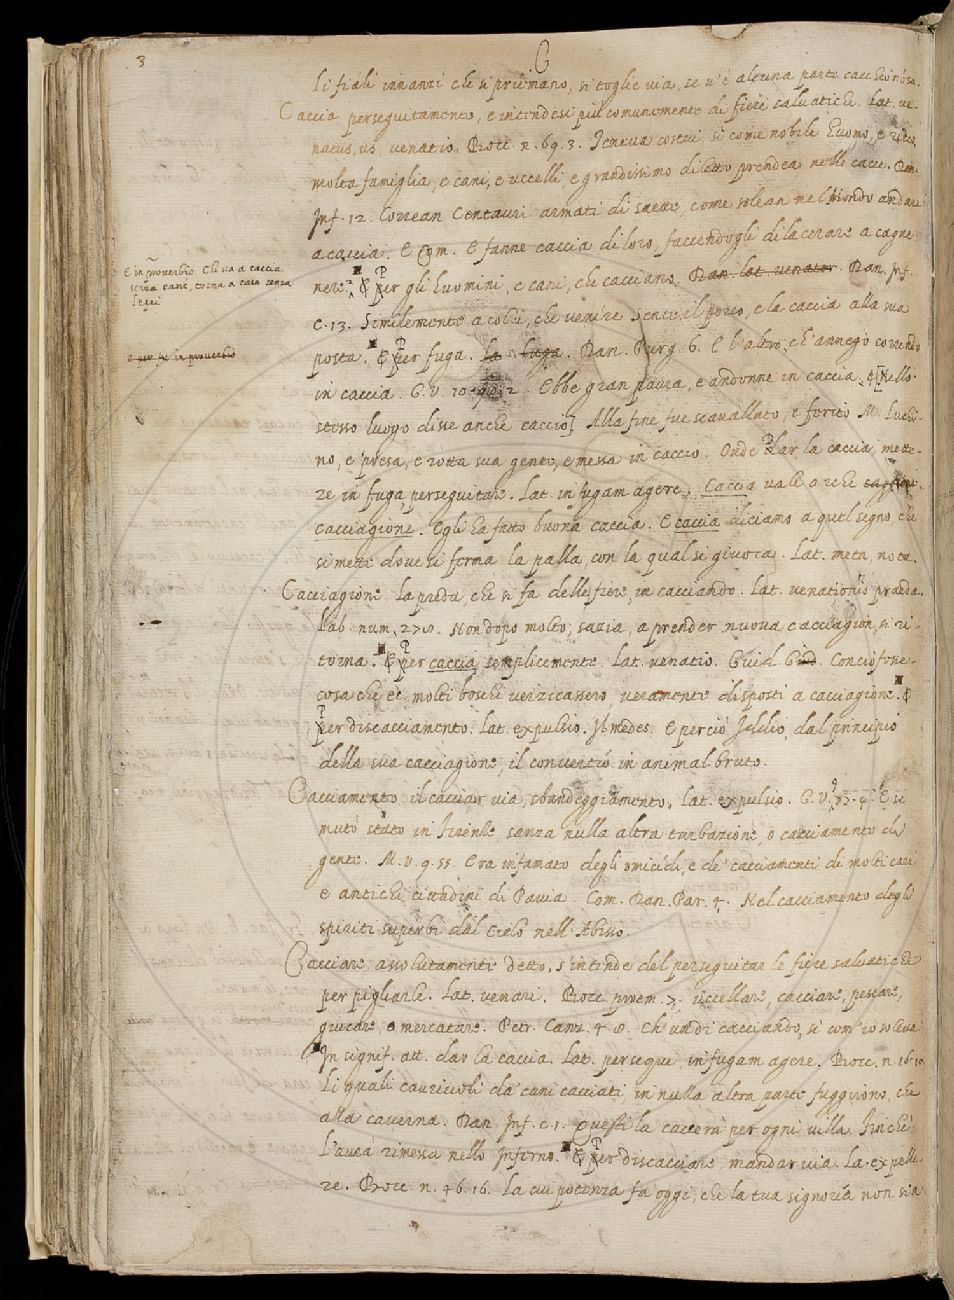 3
C
li fiali innanzi che si priemano, si toglie via, se v'è alcuna parte
Caccia perseguitamento, e intendesi più comunemente di fiere salvatiche. Lat. ve-
natus, us, venatio. Bocc. n. 69. 3. Teneva costui, sì come nobile huomo, e ricco,
molta famiglia, e cani, e uccelli, e grandissimo diletto prendea nelle cacce. Dan.
Inf. 12. Correan Centauri armati di saette, come solean nel Mondo andare
a caccia. E Com. E fanne caccia di loro, faccendogli dilacerare a cagne
nere. E Per gli huomini, e cani, che cacciano. Dan. lat. venator. Dan. Inf.
E in proverbio. Chi va a caccia
senza cane, torna a casa senza
lepri
c. 13. Similemente a colui, che venire Sente il porco, e la caccia alla sua
posta. E Per fuga. la fuga. Dan. Purg. 6. E l'altro, ch'annegò correndo
in proverbio
in caccia. G. V. 10. 2. Ebbe gran paura, e andonne in caccia, e [Nello
stesso luogo disse anche caccio] Alla fine fue scavallato, e ferito M. Luchi-
no, e presa, e rotta sua gente, e messa in caccio. Onde Dar la caccia, mette-
re in fuga, perseguitare. Lat. in fugam agere. Caccia vale anche
cacciagione. Egli ha fatto buona caccia. E caccia diciamo a quel segno, che
si mette dove si ferma la palla, con la qual si giuoca. Lat. meta, nota.
Cacciagione. La preda, che si fa delle fiere, in cacciando. Lat. venationis praeda.
Lab. num. Non dopo molto, sazia, a prender nuova cacciagion, si ri-
torna. E Per caccia semplicemente. Lat. venatio. Guid. Giud. Conciofosse-
cosa che e' molti boschi verzicassero, veramente disposti a cacciagione. E
Per discacciamento. Lat. expulsio. Il medes. E perciò Iddio, dal principio
della sua cacciagione, il convertì in animal bruto.
Cacciamento il cacciar via, sbandeggiamento. Lat. expulsio. G. V. E si
mutò stato in Firenze sanza nulla altra turbazione, o cacciamento di
gente. M. V. 9. 55. Era infamato degli omicidi, e de' cacciamenti di molti cari
e antichi cittadini di Pavia. Com. Dan. Par. 4. Nel cacciamento degli
spiriti superbi dal Cielo nell'Abisso.
Cacciare assolutamente detto, s'intende del perseguitar le fiere salvatiche
per pigliarle. Lat. venari. Bocc. proem. 7. uccellare, cacciare, pescare,
giucare, o mercatare. Petr. Canz. 4. 8. Ch'un dì cacciando, sì com'io solea
In signif. att. dar la caccia. Lat. persequi, in fugam agere. Bocc. n. 16. 10.
Li quali cavriuoli da cani cacciati, in nulla altra parte fuggirono, che
alla caverna. Dan. Inf. c. 1. Questi la caccerà per ogni villa, Finchè
l'avrà rimessa nello Inferno. E Per discacciare, mandar via. La. expelle-
re. Bocc. n. 46. 16. La cui potenza fa oggi, che la tua signoria non sia